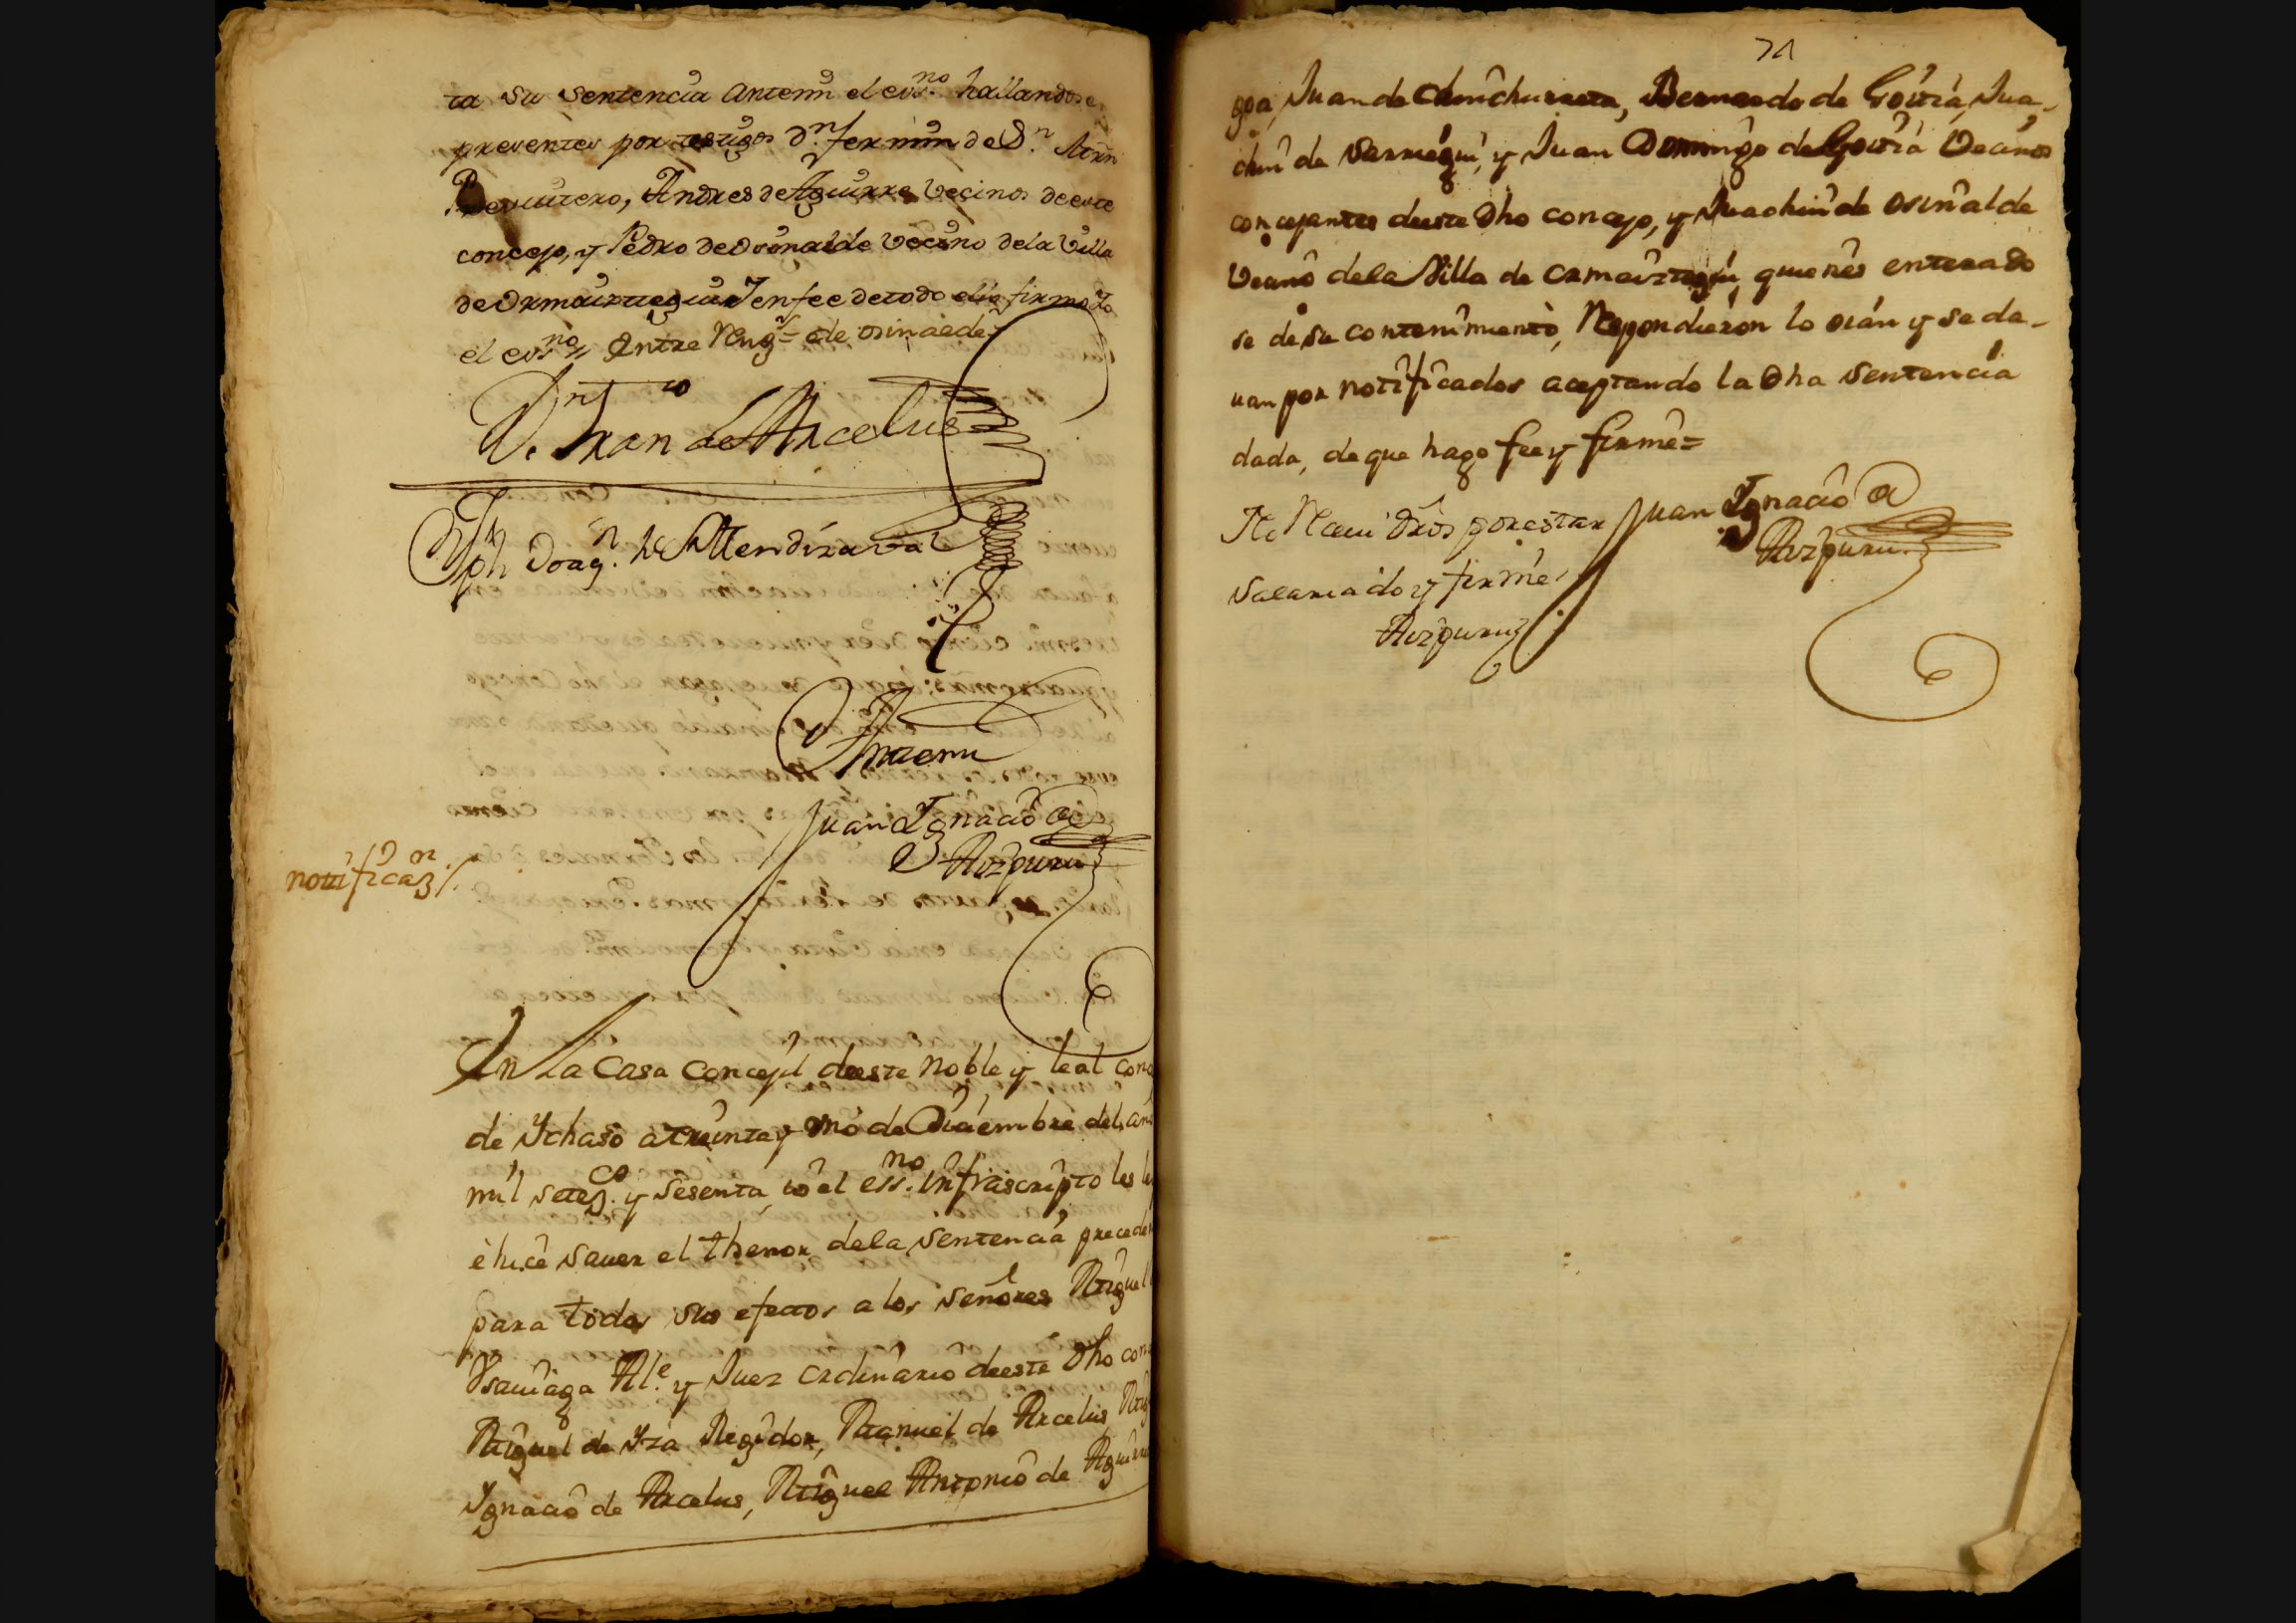 ta su sentencia antemi el ess.no hallandose
presentes por testigos D.n fermin de S.n Mrn
Presvitero, Andres de Aguirre vecinos de este
concejo, y Pedro de Osinalde vecino dela Villa
de Ormaiztegui, Y en fee de todo ello firmo Yo
el ess.no // Entre Reng.s = de osinalde =
D.n Fran.co de Arcelus
Jph Joaq.n de Mendizaval
Antemi
Juan Ygnacio de
Aizpuru
notificaz.on /.
En La Casa Concejil deeste Noble y leal conc
de Ychaso a treinta y uno de Diciembre del añ
mil setez.os y sesenta, io el ess.no infrascripto les le
è hice saver el thenor dela sentencia preceden
para todos sus efectos a los señores Miguel
Ysaviaga Al.e y Juez ordinario deeste dho con
Miguel de Yza Regidor, Manuel de Arcelus, Mig
Ygnacio de Arcelus, Miguel Antonio de Aguirre
71
goa, Juan de Chinchurreta, Bernardo de Goitia, Jua-
chin de Sarriegui, y Juan Domingo de Goitia Vecinos
concejantes deeste dho concejo, y Juachin de Osinalde
Vecino dela Villa de Ormaiztegui, quienes enterado
se de su contenimiento, Respondieron lo oian y se da-
uan por notificados aceptando la dha sentencia
dada, de que hago fee y firmè =
No lleui dros por estar
salariado y firmè
Aizpuru
Juan Ygnacio de
Aizpuru